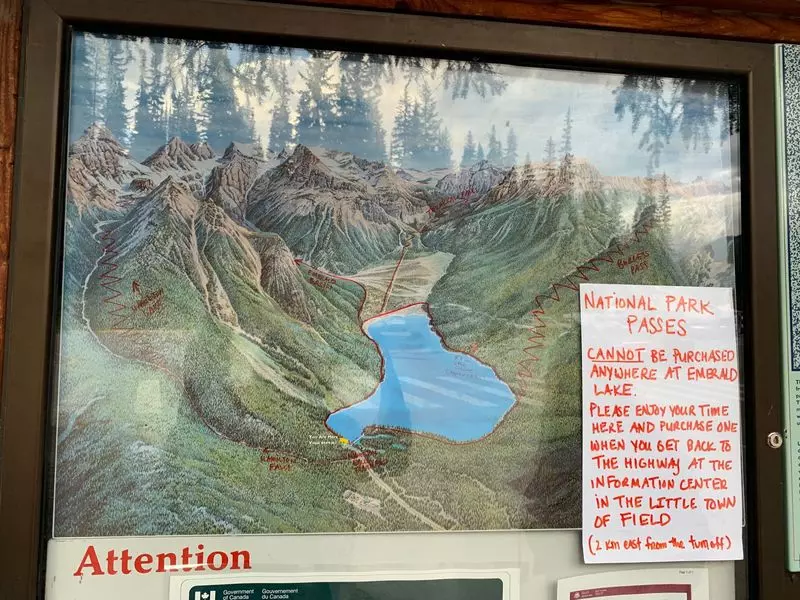 BURGESS
PASS
You Are Here
HAMILTON
FALLS
NATIONAL PARK
PASSES
CANNOT BE PURCHASED
ANYWHERE AT EMERALD
LAKE.
PLEASE ENJOY YOUR TIME
HERE AND PURCHASE ONE
WHEN YOU GET BACK TO
THE HIGHWAY AT THE
INFORMATION CENTER
IN THE LITTLE TOWN
OF FIELD
(2 km east from the turnoff)
Attention
Government Gouvernement
of Canada du Canada